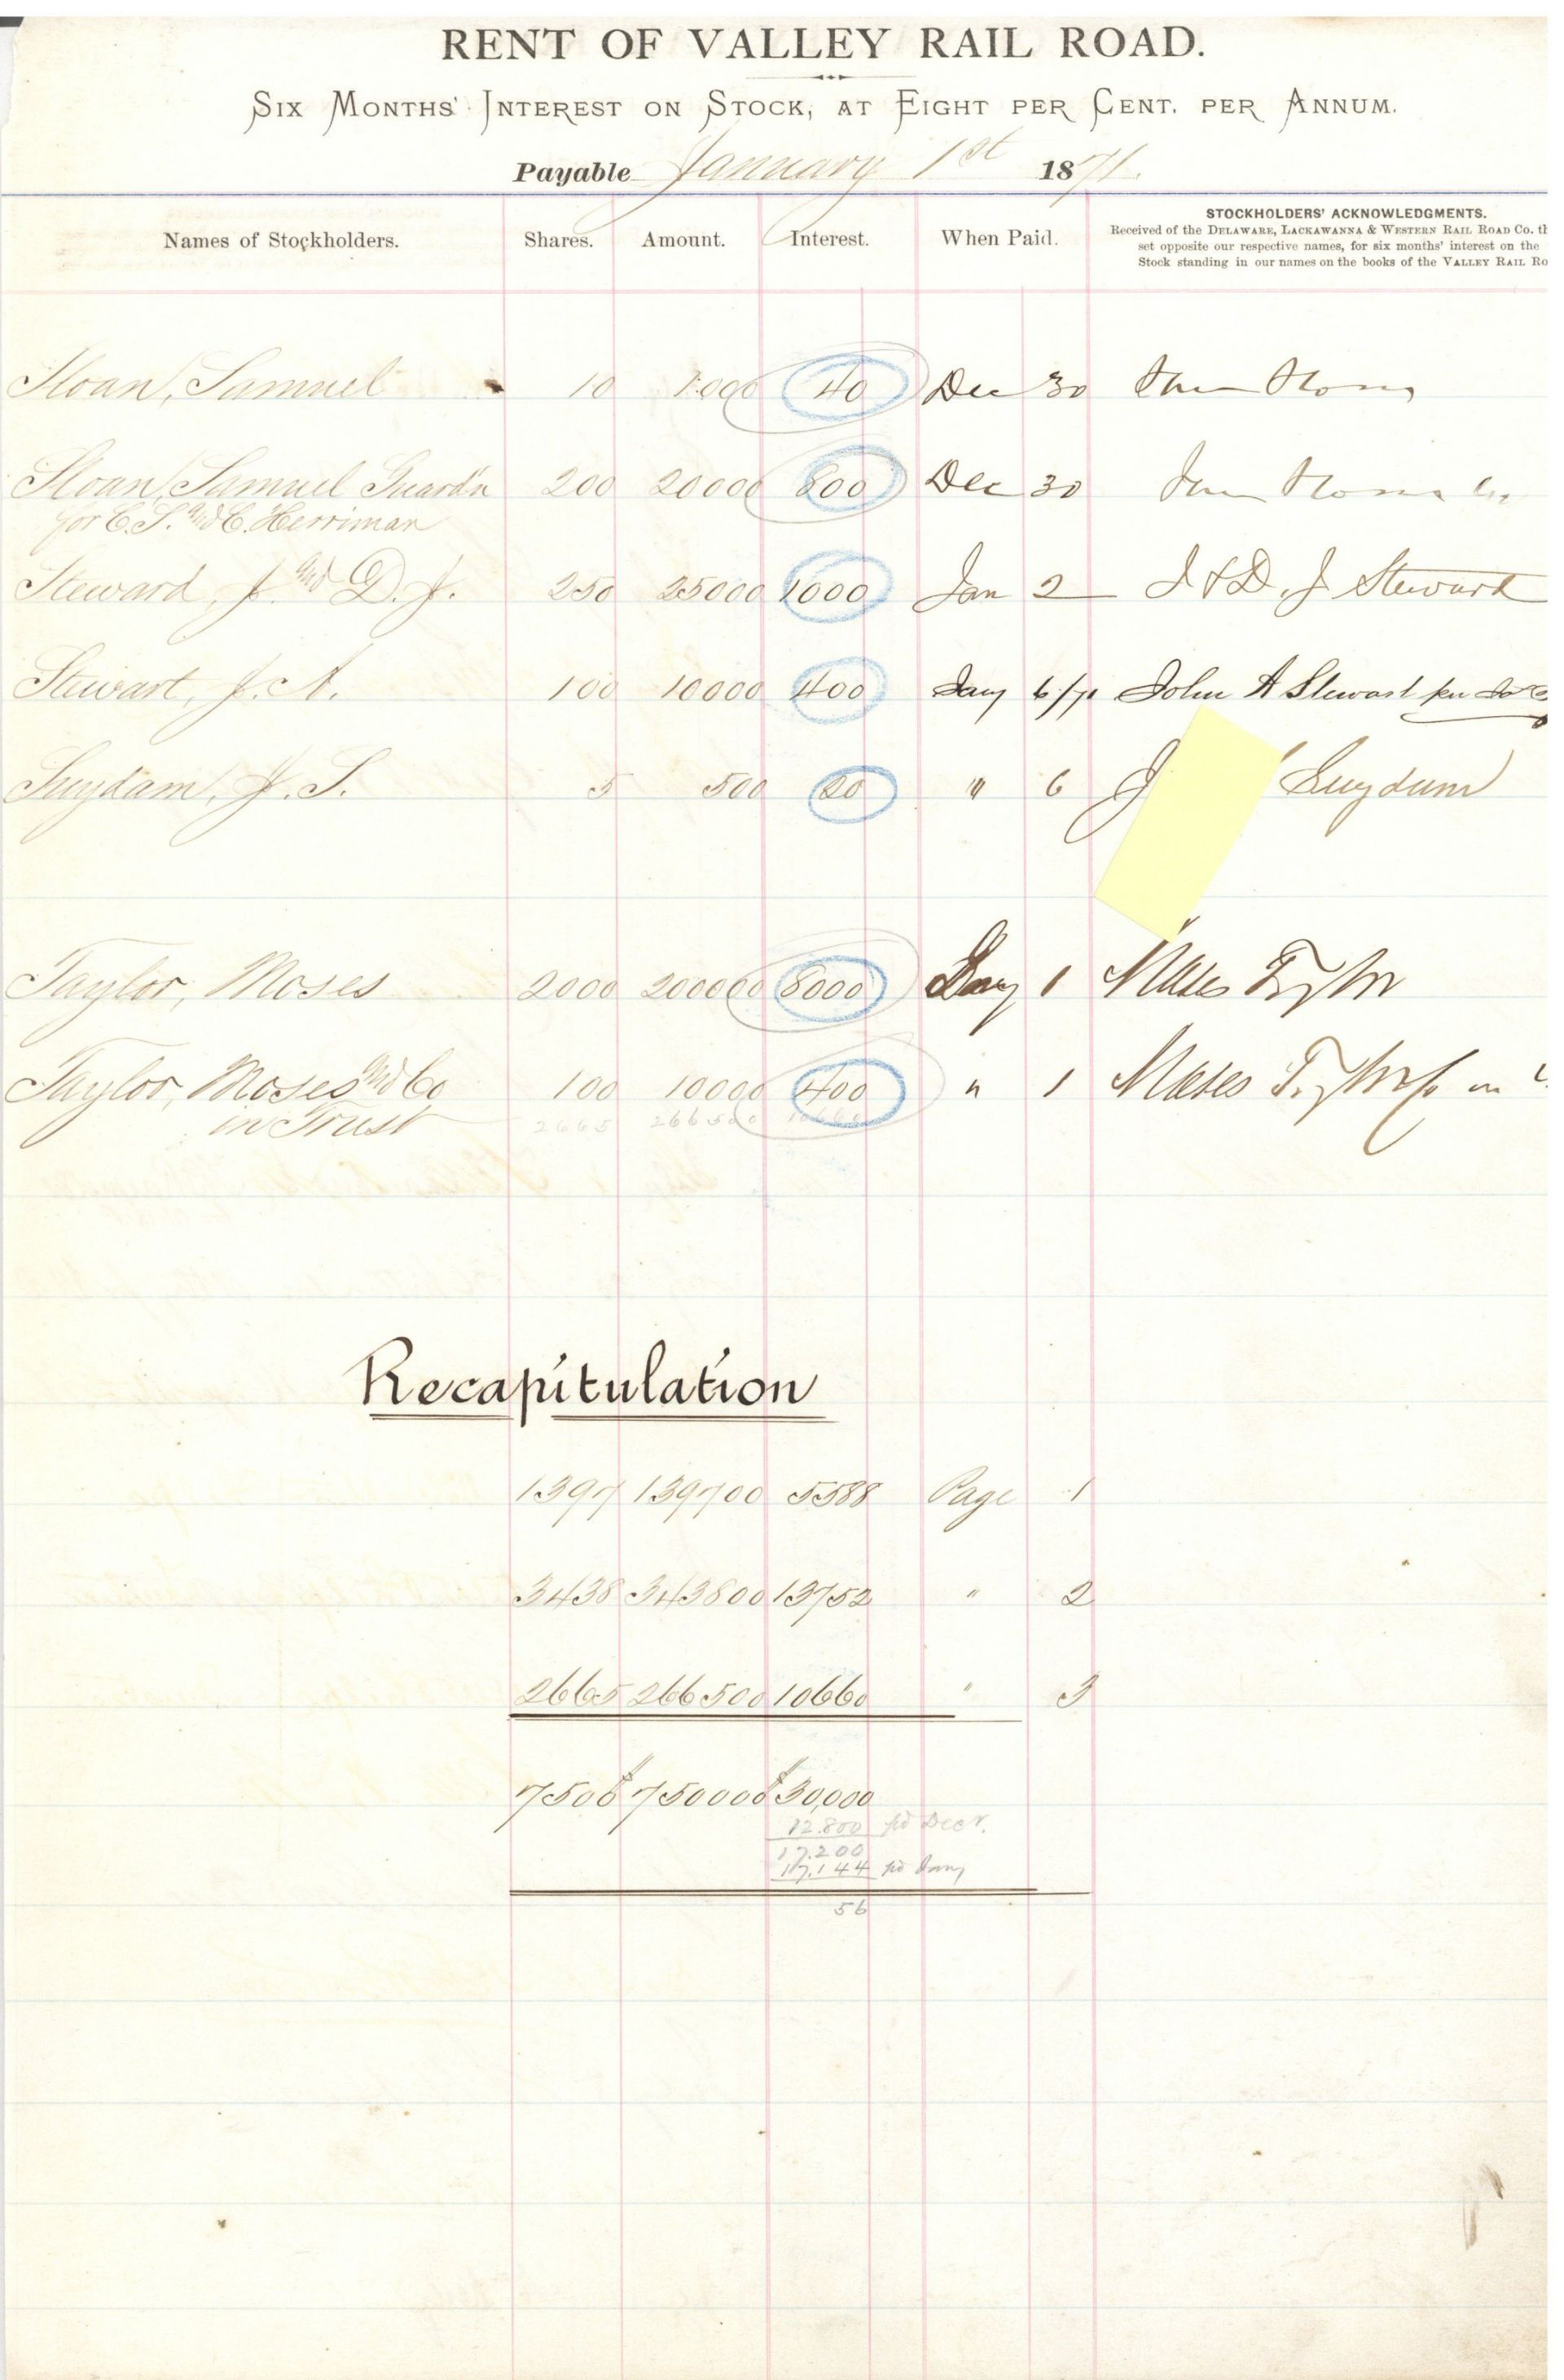 RENT OF VALLEY RAIL ROAD.
SIX MONTHS' INTEREST ON STOCK, AT EIGHT PER CENT. PER ANNUM.
Payable January 1st 1871.
Names of Stockholders. Shares. Amount. Interest. When Paid. STOCKHOLDERS' ACKNOWLEDGMENTS.
Received of the DELAWARE, LACKAWANNA & WESTERN RAIL ROAD Co. th
set opposite our respective names, for six months' interest on the
Stock standing in our names on the books of the VALLEY RAIL RO
Sloan, Samuel 10 1000 40 Dec 30 Sam Sloan
Sloan, Samuel Guardn 200 20000 800 Dec 30 Sam Sloan
for C. S. and C. Herriman
Steward, J. and D. J. 250 25000 1000 Jan 2 J & D. J Steward
Stewart, J. A. 100 10000 400 Jany 6/71 John A Stewart per
Suydam, J. S. 5 500 20 " 6 J Suydam
Taylor, Moses 2000 200000 8000 Jany 1 Moses Taylor
Taylor, Moses and Co 100 10000 400 " 1 Moses Taylor & Co in
in Trust 2665 266500 10660
Recapitulation
1397 139700 5588 Page 1
3438 343800 13752 " 2
2665 266500 10660 " 3
7500 $750000 $30,000
12.800 pd Decr.
17.200
17.144 pd Jany
56